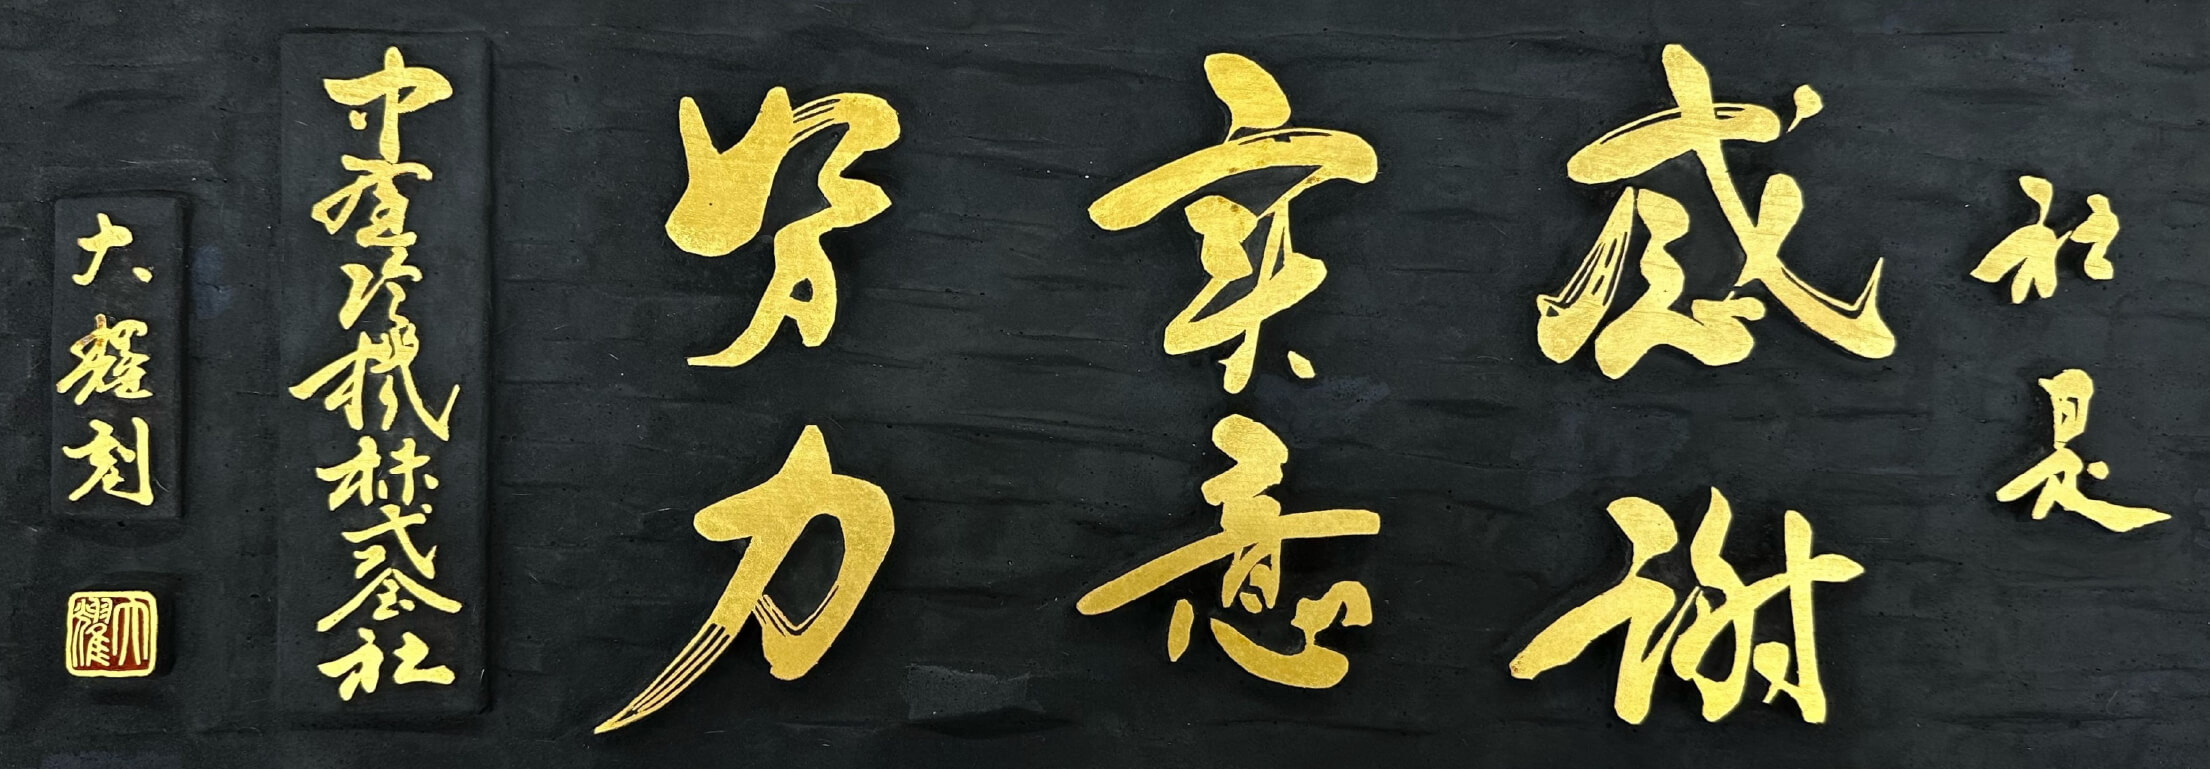 社是
感謝
実意
努力
中冷機株式会社
大耀刻
大耀